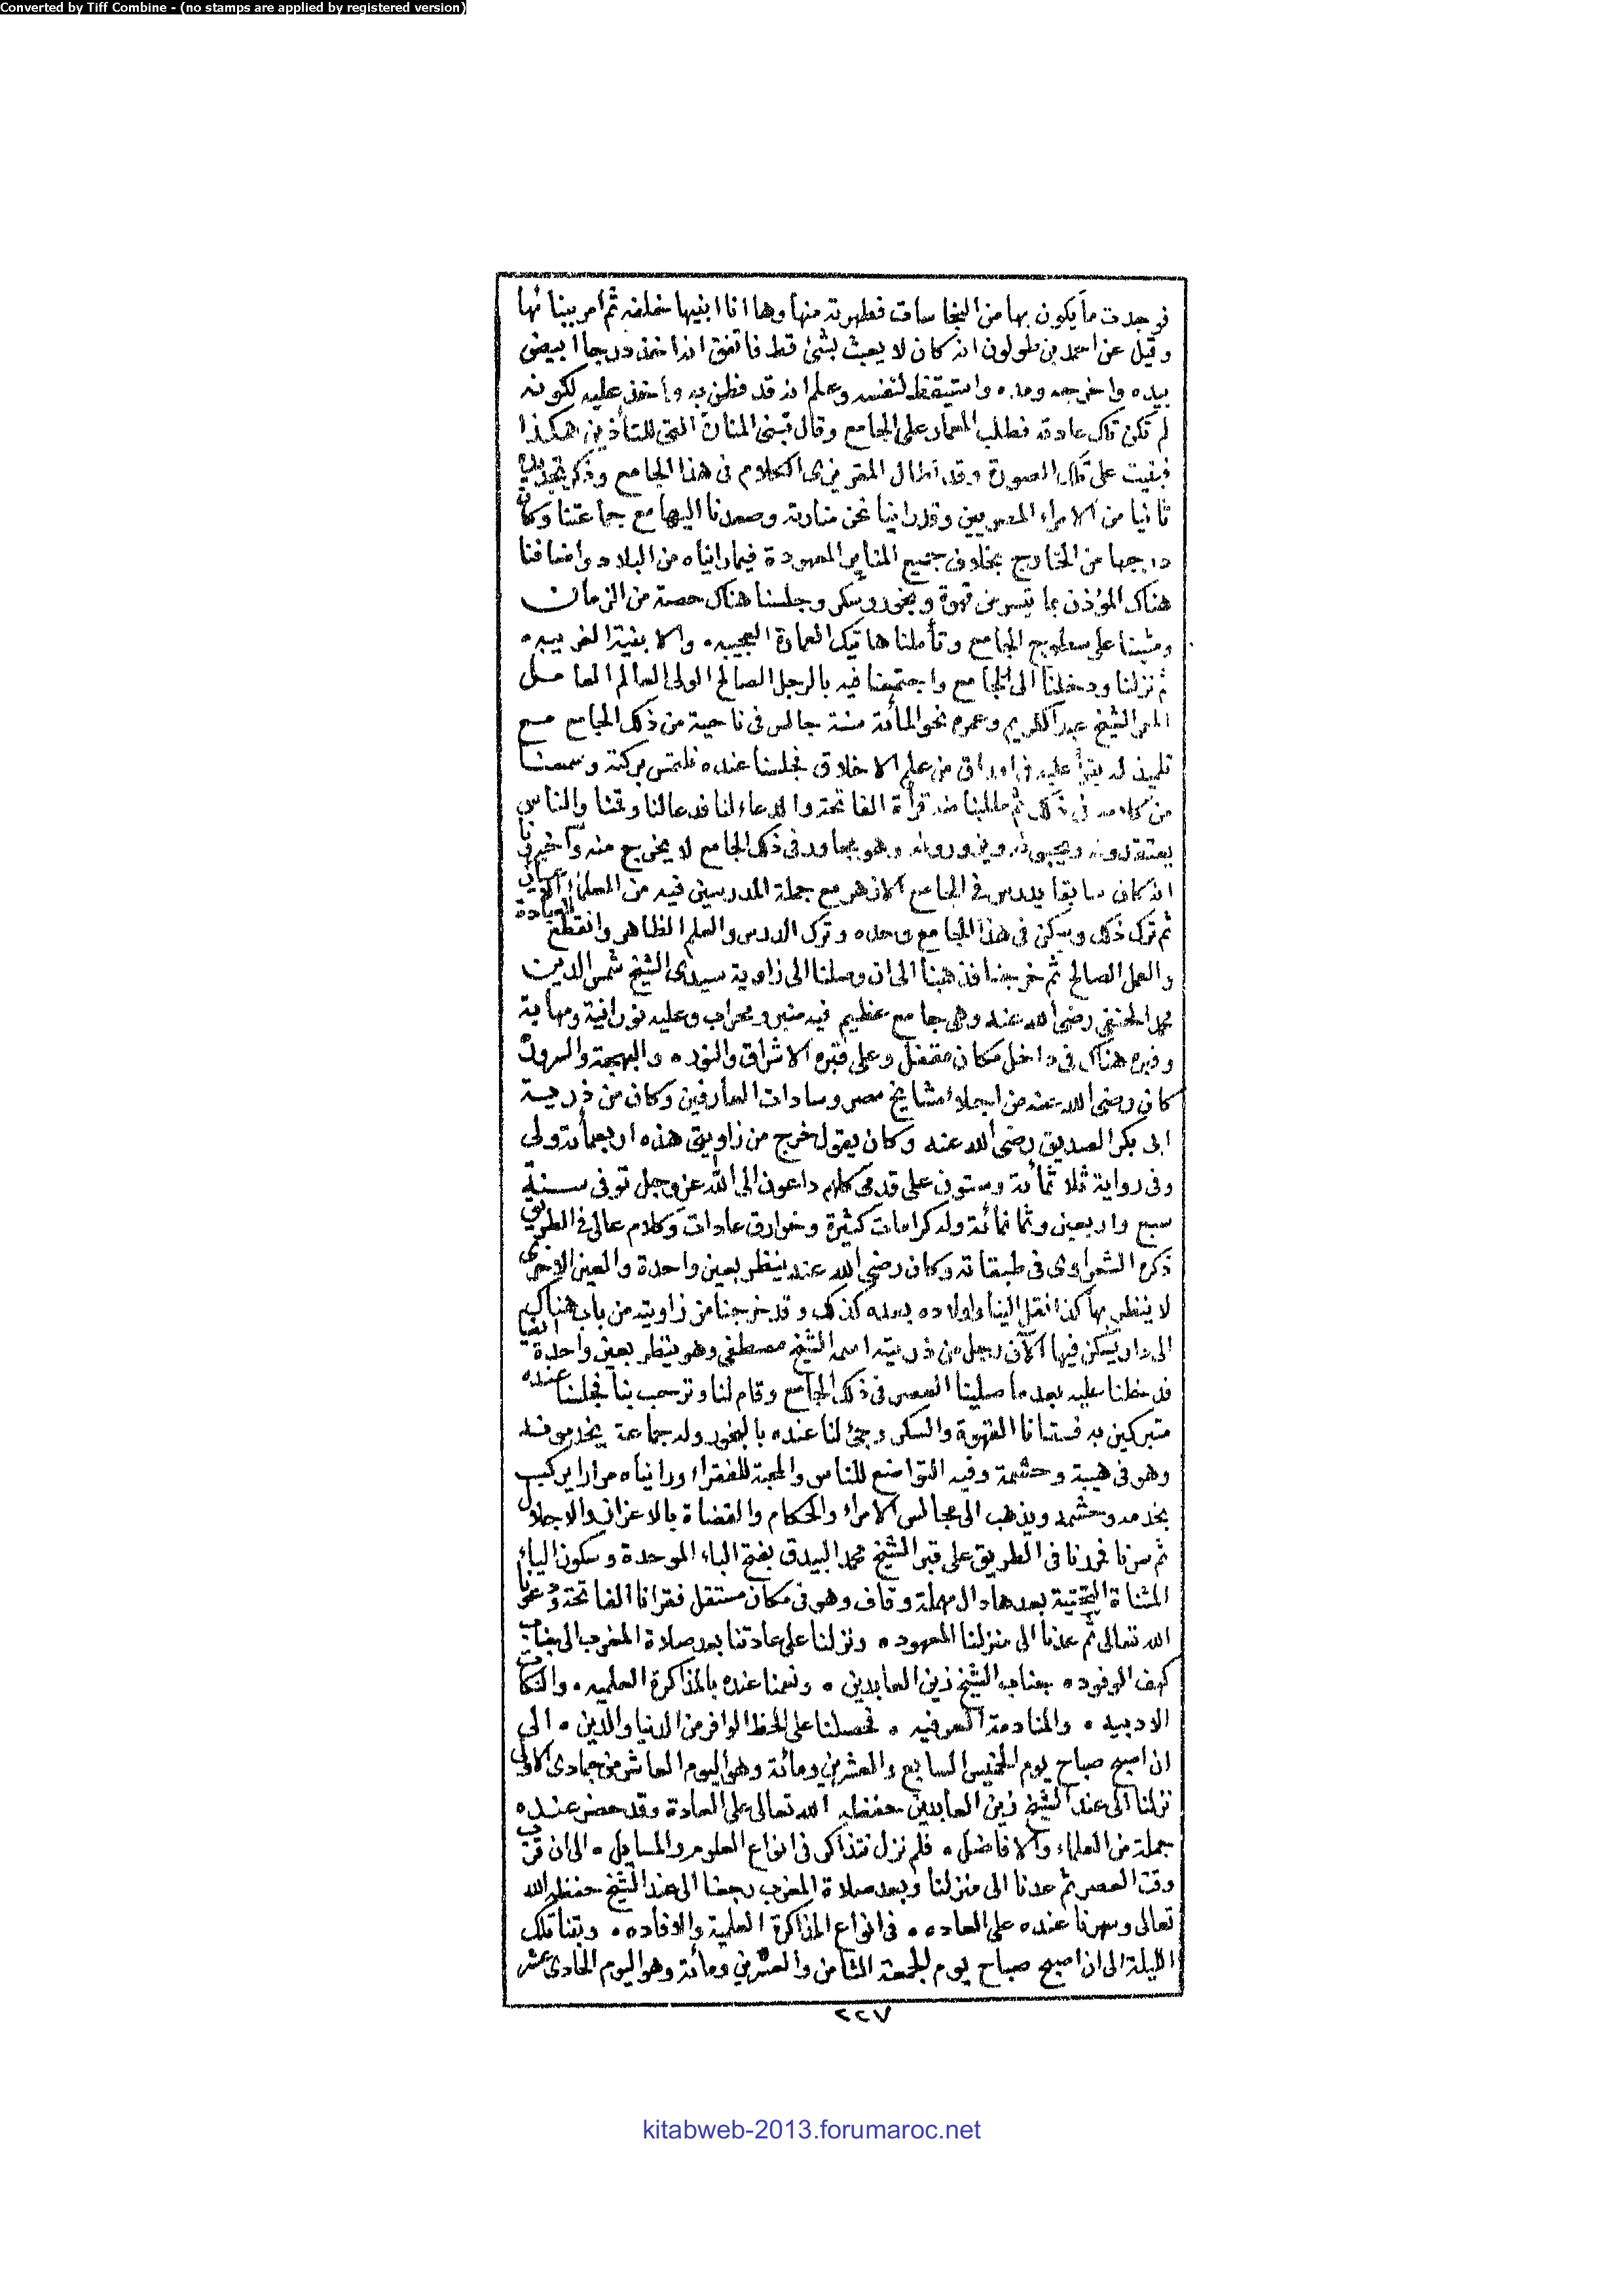 Converted by Tiff Combine - (no stamps are applied by registered version)
فوجدت ما يكون بها من النجاسات فطهرته منها وها انا ابنيها خلفه ثم أمر ببنائها
وقيل عن احمد بن طولون انه كان لا يعبث بشئ قط فاتفق انه اخذ درجا ابيض
بيده واخرجه ومده واستيقظ لنفسه وعلم انه قد فطن به وأخذ عليه لكونه
لم تكن تلك عادته فطلب المعمار على الجامع وقال تبنى المنارة التى للتأذين هكذا
فبنيت على تلك الصورة وقد اطال المقريزى الكلام فى هذا الجامع وذكر تجديده
ثانيا من الامراء المصريين وقد راينا نحن منارته وصعدنا اليها مع جماعتنا وكان
درجها من الخارج بخلاف جميع المناير المعهودة فيما رايناه من البلاد واضافنا
هناك المؤذن بما تيسر من قهوة وبخور وسكر وجلسنا هناك حصة من الزمان
ومشينا على سطوح الجامع وتأملنا هاتيك العمارة العجيبه ٥ والابنية الغريبه ٥
ثم نزلنا ودخلنا الى الجامع واجتمعنا فيه بالرجل الصالح الولى العالم العامل
الشيخ عبد الكريم وعمره نحو المائة سنة جالس فى ناحية من ذلك الجامع مع
تلميذ له يقرأ عليه فى اوراق من علم الاخلاق فجلسنا عنده نلتمس بركته وسمعنا
من كلامه فى ذلك ثم طلبنا منه قرأة الفاتحة والدعاء لنا فدعا لنا وقمنا والناس
يعتقدونه ويحبونه ويزورونه وهو مجاور فى ذلك الجامع لا يخرج منه وأخبرنا
انه كان سابقا يدرس فى الجامع الازهر مع جملة المدرسين فيه من العلماء
ثم ترك ذلك وسكن فى هذا الجامع وحده وترك الدرس والعلم الظاهر وانقطع للعبادة
والعمل الصالح ثم خرجنا فذهبنا الى ان وصلنا الى زاوية سيدى الشيخ شمس الدين
محمد الحنفى رضى الله عنه وهى جامع عظيم فيه منبر ومحراب وعليه نورانية ومهابة
وقبره هناك فى داخل مكان مقفل وعلى قبره الاشراق والنور ٥ والبهجة والسرور
كان رضى الله عنه من اجلاء مشايخ مصر وسادات العارفين وكان من ذرية
ابى بكر الصديق رضى الله عنه وكان يقول خرج من زاويتى هذه اربعمائة ولى
وفى رواية ثلاثمائة وستون على قدمى كلهم داعون الى الله عز وجل توفى سنة
سبع واربعين وثمانمائة وله كرامات كثيرة وخوارق عادات وكلام عالى فى الطريق
ذكره الشعراوى فى طبقاته وكان رضى الله عنه ينظر بعين واحدة والعين الاخرى
لا ينظر بها كذا نقل الينا واولاده بعده كذلك وقد خرجنا من زاويته من باب هناك
الى دار يسكن فيها الآن رجل من ذريته اسمه الشيخ مصطفى وهو ينظر بعين واحدة ايضا
فدخلنا عليه بعد ما صلينا العصر فى ذلك الجامع وقام لنا وترحب بنا فجلسنا عنده
متبركين به فسقانا القهوة والسكر وجئ لنا عنده بالبخور وله جماعة يخدمونه
وهو فى هيبة وحشمة وفيه التواضع للناس والمحبة للفقراء ورايناه مرارا يركب
بخدمه وحشمه ويذهب الى مجالس الامراء والحكام والقضاة بالاعزاز والاجلال
ثم سرنا فمررنا فى الطريق على قبر الشيخ محمد البيدق بفتح الباء الموحدة وسكون الياء
المثناة التحتية بعدها دال مهملة وقاف وهو فى مكان مستقل فقرانا الفاتحة ودعونا
الله تعالى ثم عدنا الى منزلنا المعهود ٥ ونزلنا على عادتنا بعد صلاة المغرب الى جناب
كهف الوفود ٥ جناب الشيخ زين العابدين ٥ ونعمنا عنده بالمذاكرة العلميه ٥ والنكات
الادبيه ٥ والمنادمة العرفيه ٥ فحصلنا على الحظ الوافر من الدنيا والدين ٥ الى
ان اصبح صباح يوم الخميس السابع والعشرين ومائة وهو اليوم العاشر من جمادى الاولى
نزلنا الى عند الشيخ زين العابدين حفظه الله تعالى على العادة وقد حضر عنده
جملة من العلماء والافاضل ٥ فلم نزل نتذاكر فى انواع العلوم والمسايل ٥ الى ان قرب
وقت العصر ثم عدنا الى منزلنا وبعد صلاة المغرب رجعنا الى عند الشيخ حفظه الله
تعالى وسهرنا عنده على العاده ٥ فى انواع المذاكرة العلمية والافاده ٥ وبتنا تلك
الليلة الى ان اصبح صباح يوم الجمعة الثامن والعشرين ومائة وهو اليوم الحادى عشر
٢٢٧
kitabweb-2013.forumaroc.net